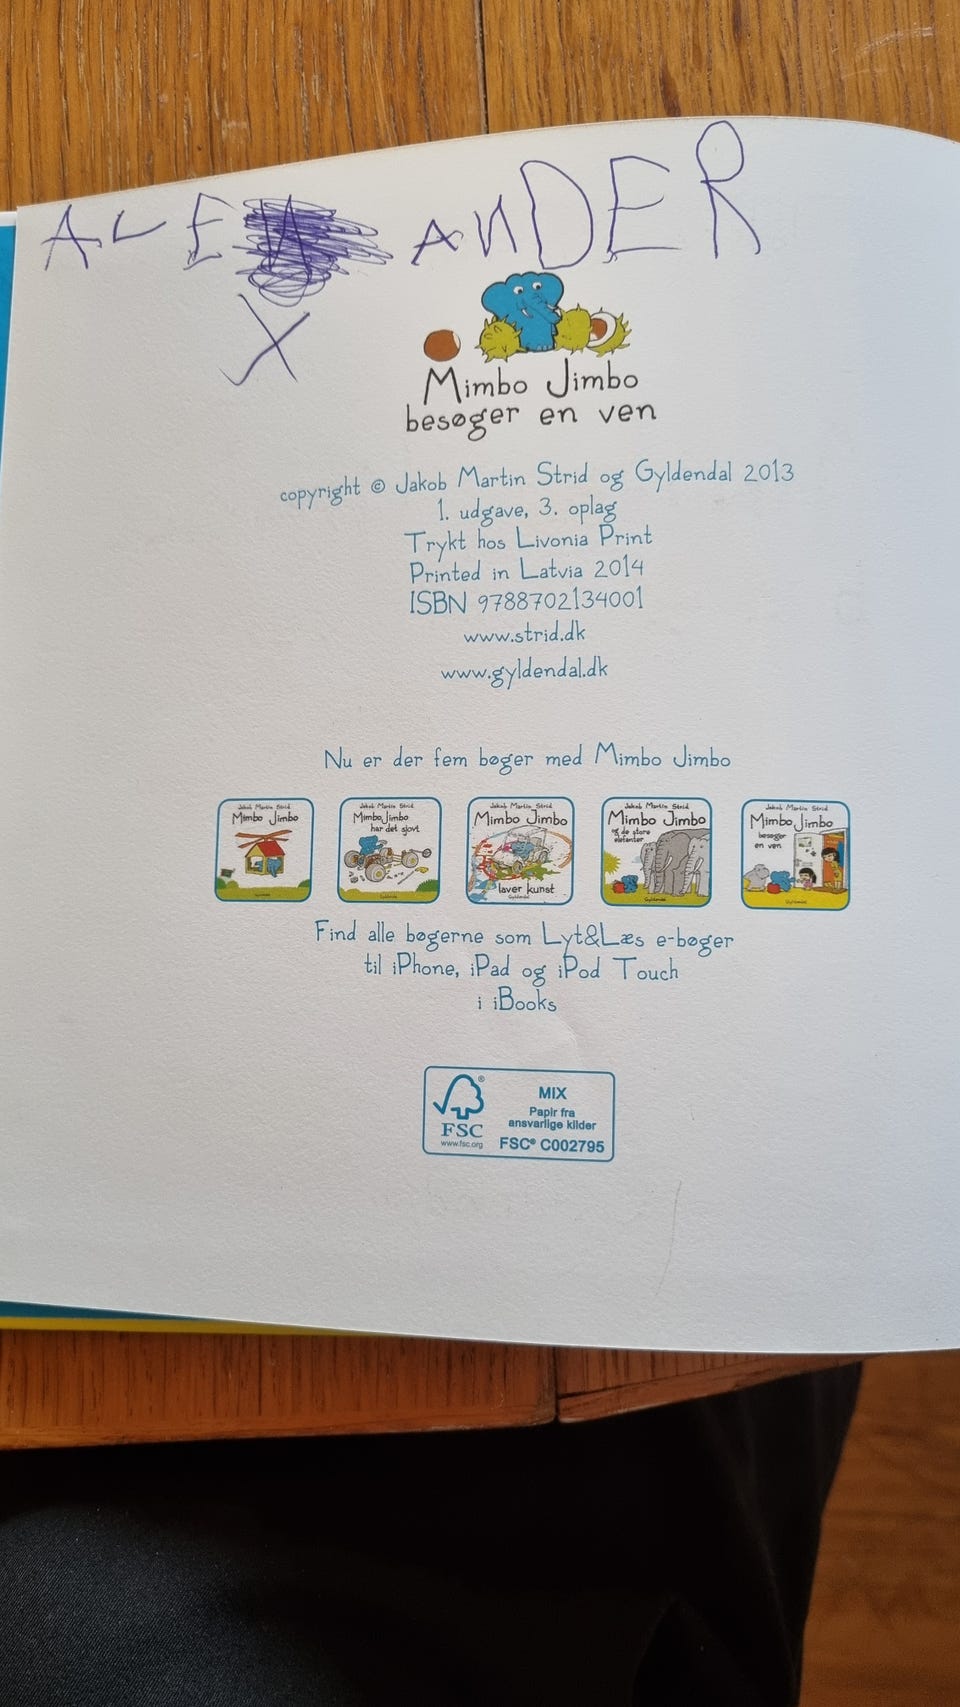 ALE ANDER
X
Mimbo Jimbo
besøger en ven
copyright © Jakob Martin Strid og Gyldendal 2013
1. udgave, 3. oplag
Trykt hos Livonia Print
Printed in Latvia 2014
ISBN 9788702134001
www.strid.dk
www.gyldendal.dk
Nu er der fem bøger med Mimbo Jimbo
Jakob Martin Strid
Mimbo Jimbo
Gyldendal
Jakob Martin Strid
Mimbo Jimbo
har det sjovt
Gyldendal
Jakob Martin Strid
Mimbo Jimbo
laver kunst
Gyldendal
Jakob Martin Strid
Mimbo Jimbo
og de store
elefanter
Gyldendal
Jakob Martin Strid
Mimbo Jimbo
besøger
en ven
Gyldendal
Find alle bøgerne som Lyt&Læs e-bøger
til iPhone, iPad og iPod Touch
i iBooks
FSC®
www.fsc.org
MIX
Papir fra
ansvarlige kilder
FSC® C002795